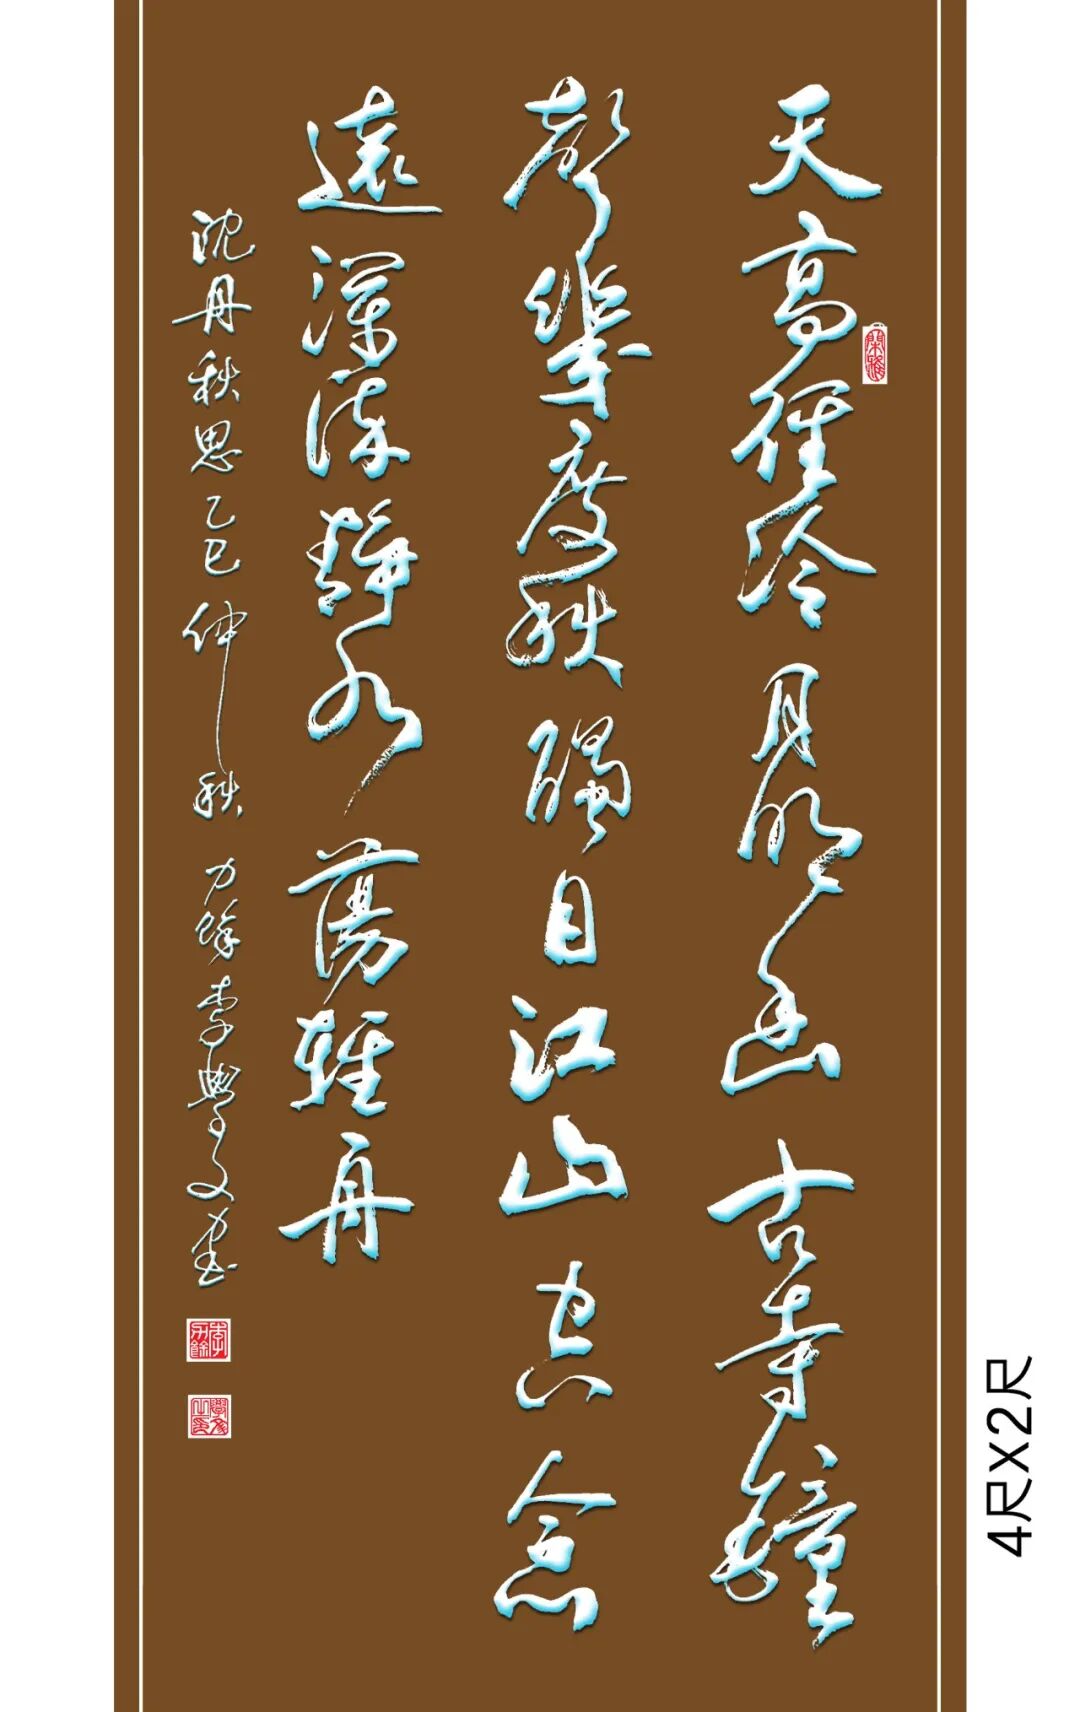 天高徑冷月明幽古寺鐘
聲幾度秋觸目江山空念
遠潭深靜水蕩輕舟
沈丹秋思乙巳仲秋力餘李學文書
4尺X2尺